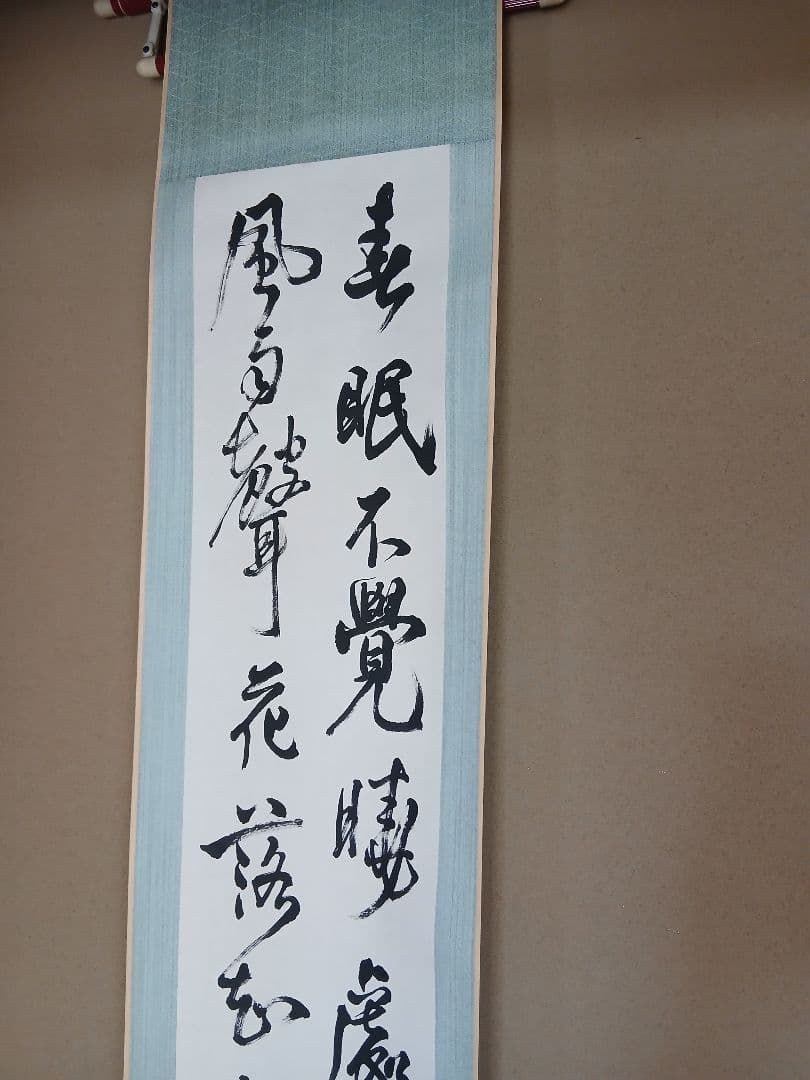 春眠不覺曉處
風雨聲花落知